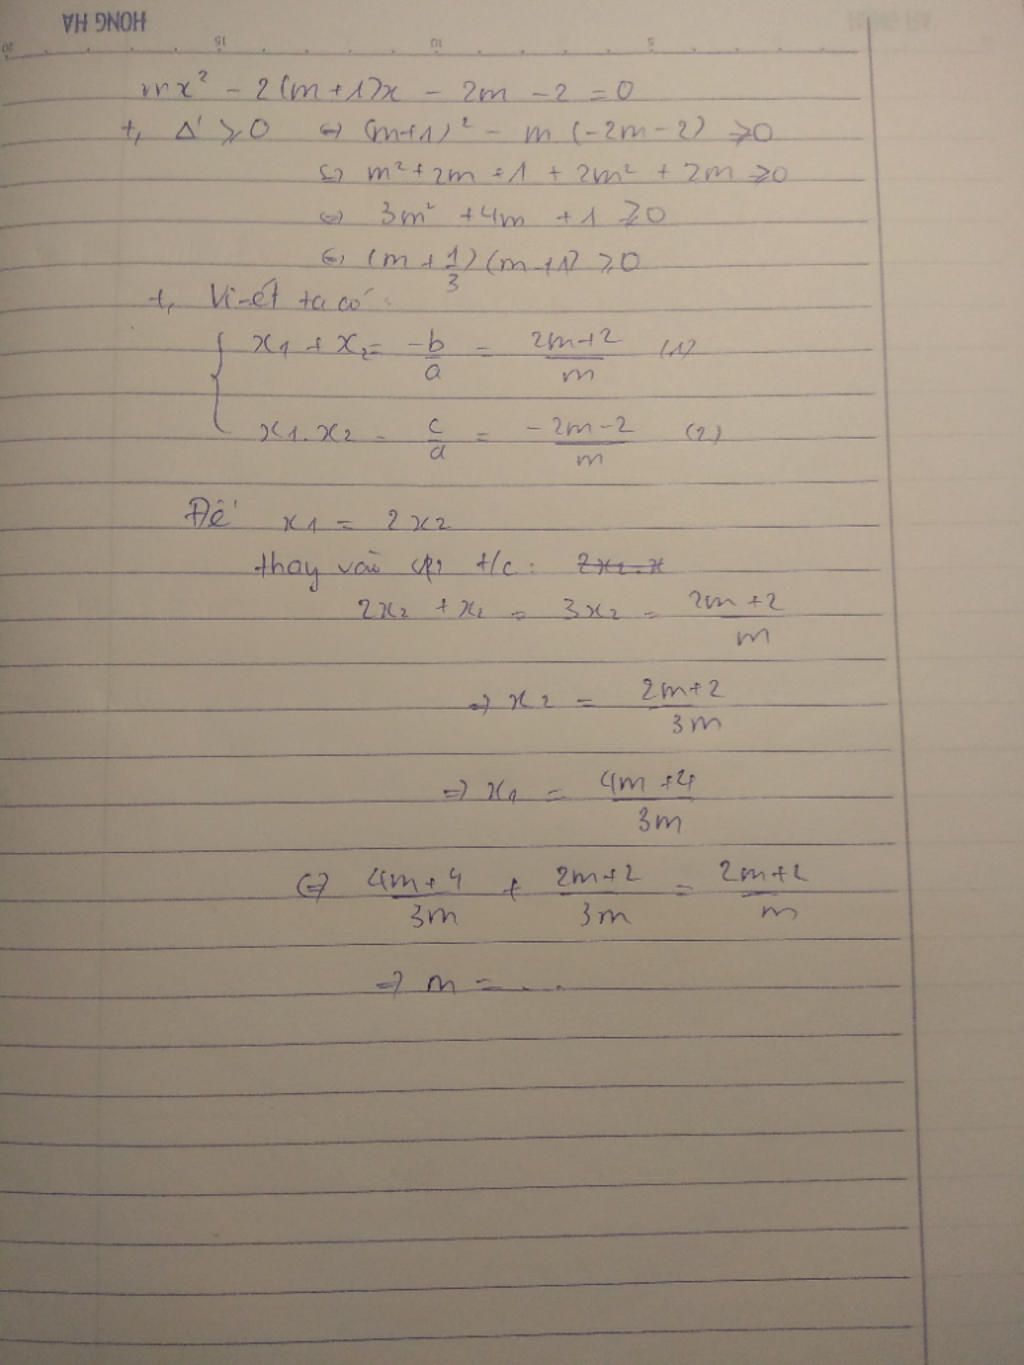 HONG HA
20 15 10 5
mx² - 2(m+1)x - 2m - 2 = 0
+, Δ' ⩾ 0 ⇔ (m+1)² - m(-2m-2) ⩾ 0
⇔ m² + 2m + 1 + 2m² + 2m ⩾ 0
⇔ 3m² + 4m + 1 ⩾ 0
⇔ (m + 1/3)(m+1) ⩾ 0
+, Vi-ét ta có:
x1 + x2 = -b/a = (2m+2)/m (1)
x1.x2 = c/a = (-2m-2)/m (2)
Để x1 = 2x2
thay vào (1) t/c:
2x2 + x2 = 3x2 = (2m+2)/m
⇒ x2 = (2m+2)/3m
⇒ x1 = (4m+4)/3m
⇔ (4m+4)/3m + (2m+2)/3m = (2m+2)/m
⇒ m = ...